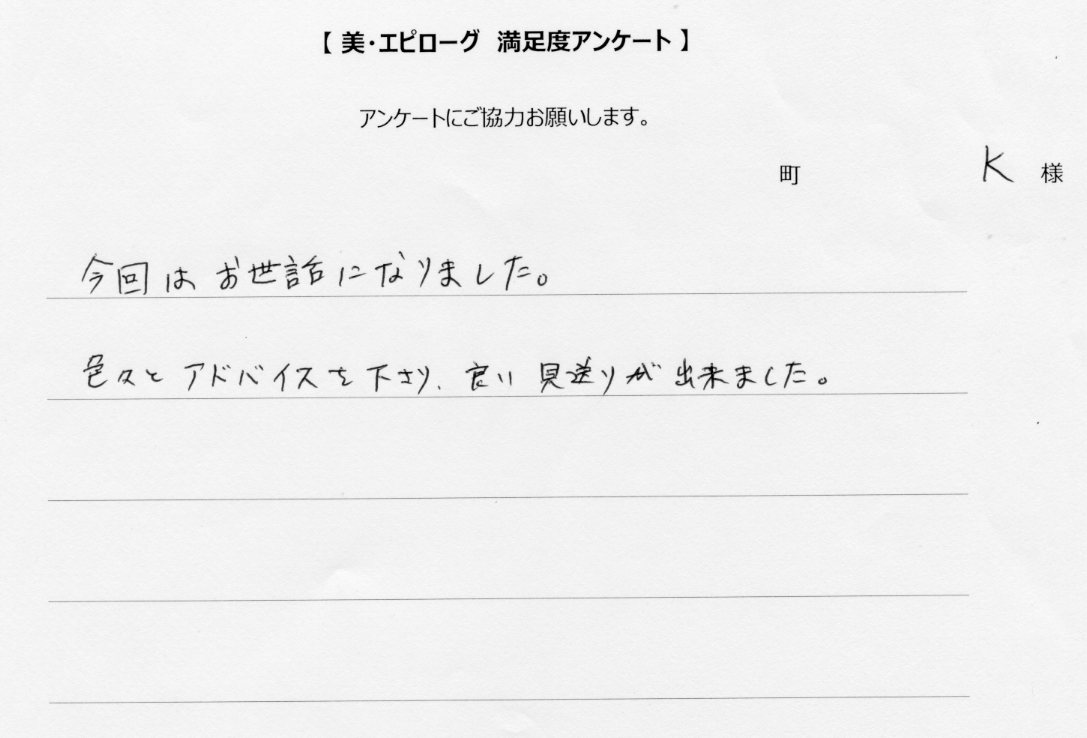 【 美・エピローグ 満足度アンケート 】
アンケートにご協力お願いします。
町 K 様
今回は お世話になりました。
色々と アドバイスを下さり、良い見送りが出来ました。